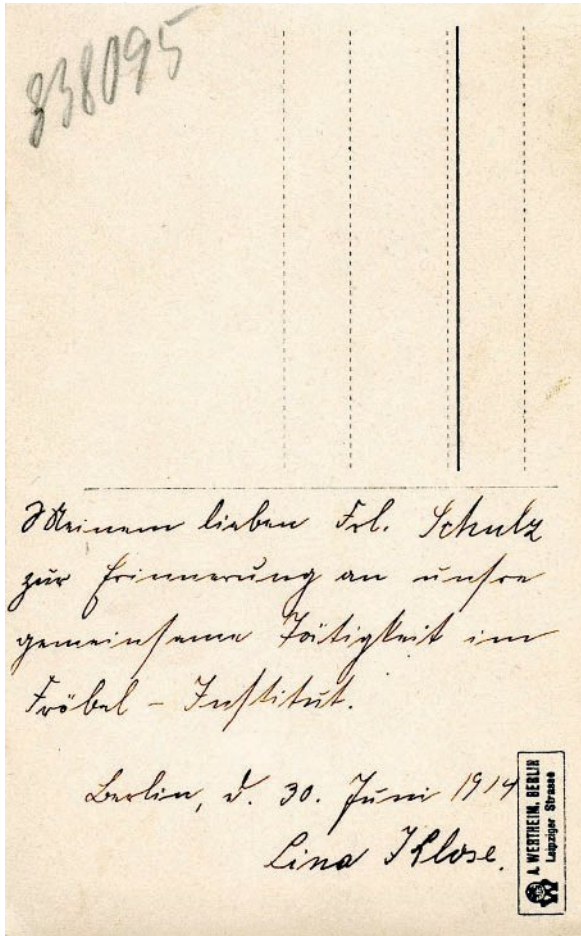 338095
Meinem lieben Frl. Schulz
zur Erinnerung an unsre
gemeinsame Tätigkeit im
Fröbel - Institut.
Berlin, d. 30. Juni 1914
Lina Klose.
A. WERTHEIM, BERLIN
Leipziger Strasse